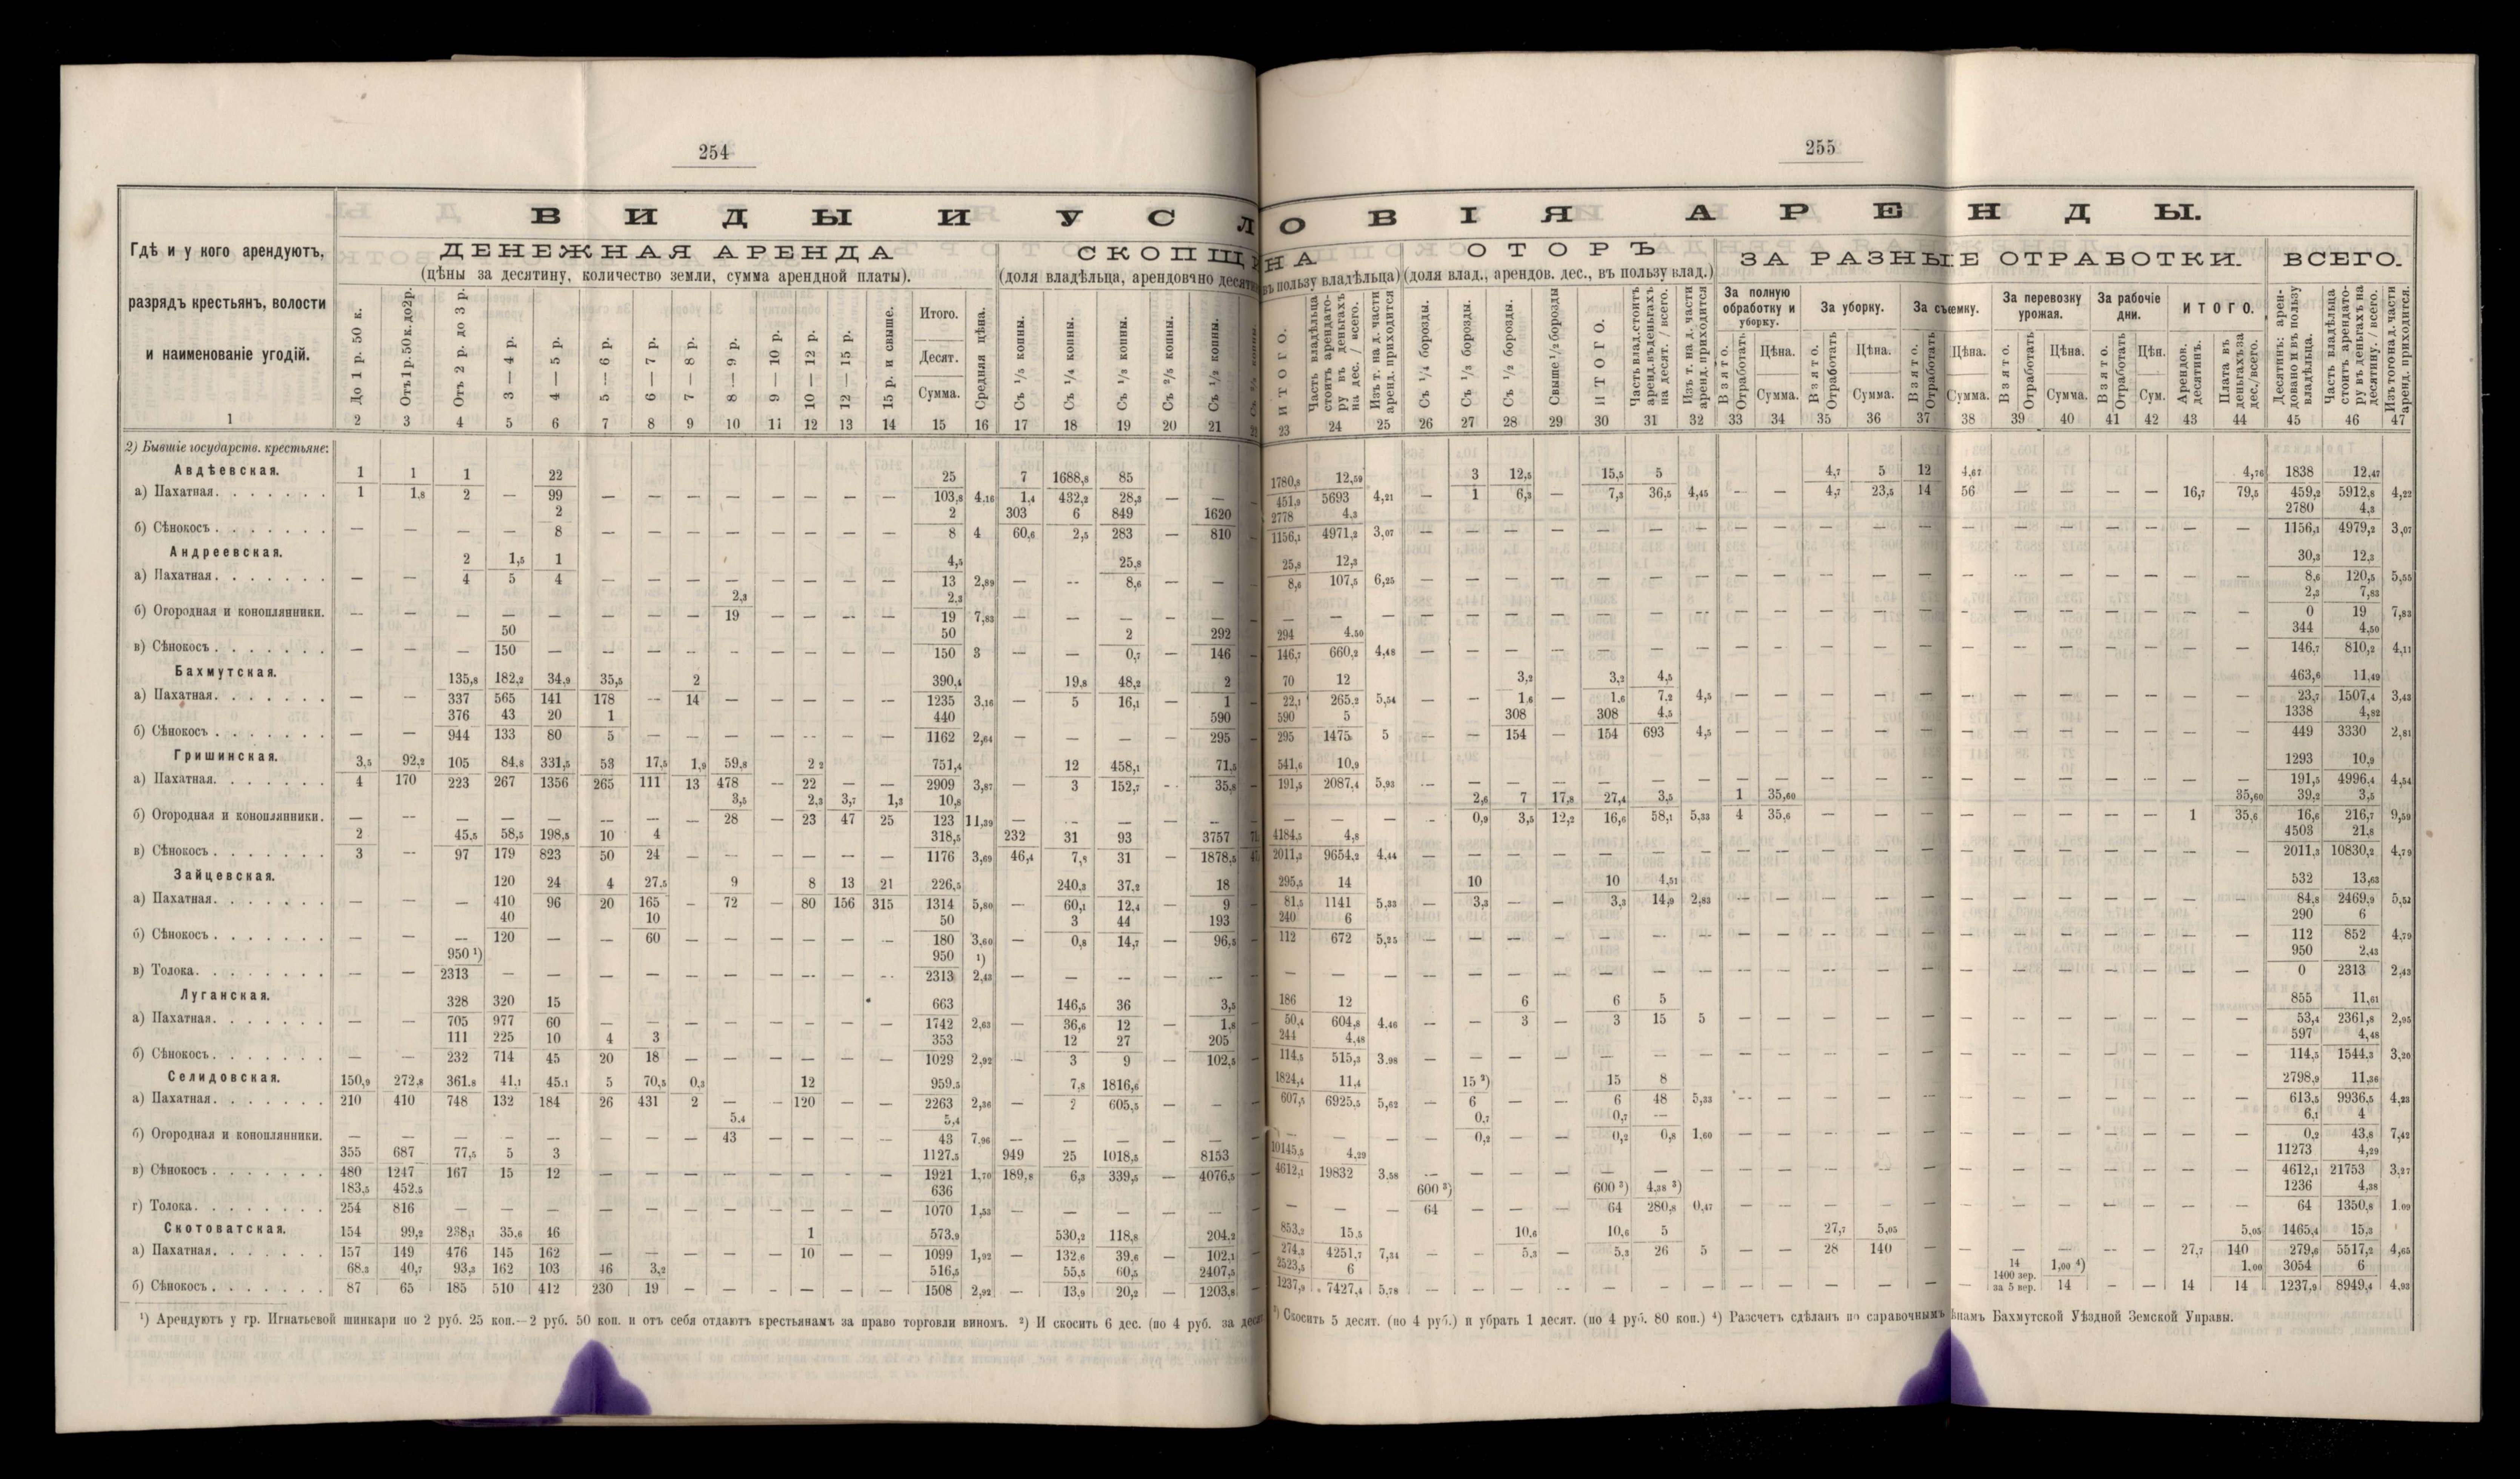 254
255
В И Д Ы И У С Л О В І Я А Р Е Н Д Ы.
Гдѣ и у кого арендуютъ,
разрядъ крестьянъ, волости
и наименованіе угодій.
ДЕНЕЖНАЯ АРЕНДА
(цѣны за десятину, количество земли, сумма арендной платы).
СКОПЩИНА
(доля владѣльца, арендовано десятинъ въ пользу владѣльца)
ОТОРЪ
(доля влад., арендов. дес., въ пользу влад.)
ЗА РАЗНЫЕ ОТРАБОТКИ.
ВСЕГО.
До 1 р. 50 к.
Отъ 1 р. 50 к. до 2 р.
Отъ 2 р. до 3 р.
3 — 4 р.
4 — 5 р.
5 — 6 р.
6 — 7 р.
7 — 8 р.
8 — 9 р.
9 — 10 р.
10 — 12 р.
12 — 15 р.
15 р. и свыше.
Итого.
Десят.
Сумма.
Средняя цѣна.
Съ 1/5 копны.
Съ 1/4 копны.
Съ 1/3 копны.
Съ 2/5 копны.
Съ 1/2 копны.
ИТОГО.
Часть владѣльца стоитъ арендатору въ деньгахъ на дес. / всего.
Изъ т. на д. части аренд. приходится
Съ 1/4 борозды.
Съ 1/3 борозды.
Съ 1/2 борозды.
Свыше 1/2 борозды
ИТОГО.
Часть влад. стоитъ аренд. въ деньгахъ на десят. / всего.
Изъ т. на д. части аренд. приходится
За полную обработку и уборку.
За уборку.
За съемку.
За перевозку урожая.
За рабочіе дни.
ИТОГО.
Взято.
Отработать
Цѣна.
Сумма.
Взято.
Отработать
Цѣна.
Сумма.
Взято.
Отработать
Цѣна.
Сумма.
Взято.
Отработать
Цѣна.
Сумма.
Взято.
Отработать
Цѣн.
Сум.
Арендов. десятинъ.
Плата въ деньгахъ за дес./всего.
Десятинъ: арендовано и въ пользу владѣльца.
Часть владѣльца стоитъ арендатору въ деньгахъ на десятину. / всего.
Изъ того на д. части аренд. приходится.
1 2 3 4 5 6 7 8 9 10 11 12 13 14 15 16 17 18 19 20 21 22 23 24 25 26 27 28 29 30 31 32 33 34 35 36 37 38 39 40 41 42 43 44 45 46 47
2) Бывшіе государств. крестьяне:
Авдѣевская.
1 1 1 22 25 7 1688,8 85 1780,8 12,59 3 12,5 15,5 5 4,7 5 12 4,67 4,76 1838 12,47
а) Пахатная. 1 1,8 2 — 99 — — — — — — — — 103,8 4.16 1,4 432,2 28,3 — — 451,9 5693 4,21 — 1 6,3 — 7,3 36,5 4,45 — — 4,7 23,5 14 56 — — — — 16,7 79,5 459,2 5912,8 4,22
2 2 303 6 849 1620 2778 4,3 2780 4,3
б) Сѣнокосъ — — — — 8 — — — — — — — — 8 4 60,6 2,5 283 — 810 1156,1 4971,2 3,07 — — — — — — — — — — — — — — — — — — — 1156,1 4979,2 3,07
Андреевская.
2 1,5 1 4,5 25,8 25,8 12,3 30,3 12,3
а) Пахатная. — — 4 5 4 — — — — — — — — 13 2,89 — — 8,6 — — 8,6 107,5 6,25 — — — — — — — — — — — — — — — — — — — 8,6 120,5 5,55
2,3 2,3 2,3 7,83
б) Огородная и коноплянники. — — — — — — — — 19 — — — — 19 7,83 — — — — — — — — — — — — — — — — — — — — — — — — — — — 0 19 7,83
50 50 2 292 294 4,50 344 4,50
в) Сѣнокосъ — — — 150 — — — — — — — — — 150 3 — — 0,7 — 146 146,7 660,2 4,48 — — — — — — — — — — — — — — — — — — — 146,7 810,2 4,11
Бахмутская.
135,8 182,2 34,9 35,5 2 390,4 19,8 48,2 2 70 12 3,2 3,2 4,5 463,6 11,49
а) Пахатная. — — 337 565 141 178 — 14 — — — — — 1235 3,16 — 5 16,1 — 1 22,1 265,2 5,54 — — 1,6 — 1,6 7,2 4,5 — — — — — — — — — — — — 23,7 1507,4 3,43
376 43 20 1 440 590 590 5 308 308 4,5 1338 4,82
б) Сѣнокосъ — — 944 133 80 5 — — — — — — — 1162 2,64 — — — — 295 295 1475 5 — — 154 — 154 693 4,5 — — — — — — — — — — — — 449 3330 2,81
Гришинская.
3,5 92,2 105 84,8 331,5 53 17,5 1,9 59,8 2 2 751,4 12 458,1 71,5 541,6 10,9 1293 10,9
а) Пахатная. 4 170 223 267 1356 265 111 13 478 — 22 — — 2909 3,87 — 3 152,7 — 35,8 191,5 2087,4 5,93 — — — — — — — — — — — — — — — — — — — 191,5 4996,4 4,54
3,5 2,3 3,7 1,3 10,8 2,6 7 17,8 27,4 3,5 1 35,60 35,60 39,2 3,5
б) Огородная и коноплянники. — — — — — — — — 28 — 23 47 25 123 11,39 — — — — — — — — — 0,9 3,5 12,2 16,6 58,1 5,33 4 35,6 — — — — — — — — 1 35,6 16,6 216,7 9,59
2 45,5 58,5 198,5 10 4 318,5 232 31 93 3757 4184,5 4,8 4503 21,8
в) Сѣнокосъ 3 — 97 179 823 50 24 — — — — — — 1176 3,69 46,4 7,8 31 — 1878,5 2011,3 9654,2 4,44 — — — — — — — — — — — — — — — — — — — 2011,3 10830,2 4,79
Зайцевская.
120 24 4 27,5 9 8 13 21 226,5 240,3 37,2 18 295,5 14 10 10 4,51 532 13,63
а) Пахатная. — — — 410 96 20 165 — 72 — 80 156 315 1314 5,80 — 60,1 12,4 — 9 81,5 1141 5,33 — 3,3 — — 3,3 14,9 2,83 — — — — — — — — — — — — 84,8 2469,9 5,52
40 10 50 3 44 193 240 6 290 6
б) Сѣнокосъ — — — 120 — — 60 — — — — — — 180 3,60 — 0,8 14,7 — 96,5 112 672 5,25 — — — — — — — — — — — — — — — — — — — 112 852 4,79
950 ¹) 950 ¹) 950 2,43
в) Толока. — — 2313 — — — — — — — — — — 2313 2,43 — — — — — — — — — — — — — — — — — — — — — — — — — — — 0 2313 2,43
Луганская.
328 320 15 663 146,5 36 3,5 186 12 6 6 5 855 11,61
а) Пахатная. — — 705 977 60 — — — — — — — — 1742 2,63 — 36,6 12 — 1,8 50,4 604,8 4.46 — — 3 — 3 15 5 — — — — — — — — — — — — 53,4 2361,8 2,95
111 225 10 4 3 353 12 27 205 244 4,48 597 4,48
б) Сѣнокосъ — — 232 714 45 20 18 — — — — — — 1029 2,92 — 3 9 — 102,5 114,5 515,3 3.98 — — — — — — — — — — — — — — — — — — — 114,5 1544,3 3,20
Селидовская.
150,9 272,8 361.8 41,1 45.1 5 70,5 0,3 12 959.5 7,8 1816,6 1824,4 11,4 15 ²) 15 8 2798,9 11,36
а) Пахатная. 210 410 748 132 184 26 431 2 — — 120 — — 2263 2,36 — 2 605,5 — — 607,5 6925,5 5,62 — 6 — — 6 48 5,33 — — — — — — — — — — — — 613,5 9936,5 4,23
5,4 5,4 0,7 0,7 — 6,1 4
б) Огородная и коноплянники. — — — — — — — — 43 — — — — 43 7,96 — — — — — — — — — 0,2 — — 0,2 0,8 1,60 — — — — — — — — — — — — 0,2 43,8 7,42
355 687 77,5 5 3 1127.5 949 25 1018,5 8153 10145,5 4,29 11273 4,29
в) Сѣнокосъ 480 1247 167 15 12 — — — — — — — — 1921 1,70 189,8 6,3 339,5 — 4076,5 4612,1 19832 3,58 — — — — — — — — — — — — — — — — — — — 4612,1 21753 3,27
183,5 452.5 636 600 ³) 600 ³) 4,38 ³) 1236 4,38
г) Толока. 254 816 — — — — — — — — — — — 1070 1,53 — — — — — — — — 64 — — — 64 280,8 0,47 — — — — — — — — — — — — 64 1350,8 1.09
Скотоватская.
154 99,2 238,1 35,6 46 1 573,9 530,2 118,8 204,2 853,2 15,5 10,6 10,6 5 27,7 5,05 5,05 1465,4 15,3
а) Пахатная. 157 149 476 145 162 — — — — — 10 — — 1099 1,92 — 132,6 39,6 — 102,1 274,3 4251,7 7,34 — — 5,3 — 5,3 26 5 — — 28 140 — — — — — — 27,7 140 279,6 5517,2 4,65
68.3 40,7 93,3 162 103 46 3,2 516,5 55,5 60,5 2407,5 2523,5 6 14 1,00 ⁴) 1,00 3054 6
б) Сѣнокосъ 87 65 185 510 412 230 19 — — — — — — 1508 2,92 — 13,9 20,2 — 1203,8 1237,9 7427,4 5,78 — — — — — — — — — — — — — 1400 зер. за 5 вер. 14 — — 14 14 1237,9 8949,4 4.93
¹) Арендуютъ у гр. Игнатьевой шинкари по 2 руб. 25 коп.—2 руб. 50 коп. и отъ себя отдаютъ крестьянамъ за право торговли виномъ. ²) И скосить 6 дес. (по 4 руб. за десят
³) Скосить 5 десят. (по 4 руб.) и убрать 1 десят. (по 4 руб. 80 коп.) ⁴) Разсчетъ сдѣланъ по справочнымъ цѣнамъ Бахмутской Уѣздной Земской Управы.